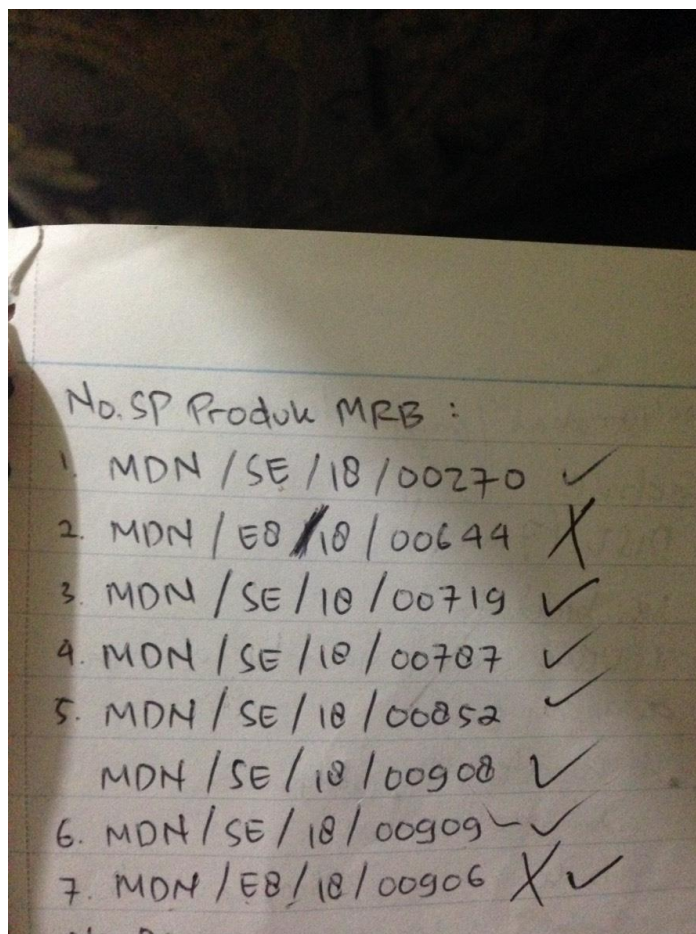 No. SP Produk MRB :
1. MDN / SE / 18 / 00270 ✓
2. MDN / E8 / 18 / 00644 X
3. MDN / SE / 18 / 00719 ✓
4. MDN / SE / 18 / 00787 ✓
5. MDN / SE / 18 / 00852 ✓
MDN / SE / 18 / 00908 ✓
6. MDN / SE / 18 / 00909 ✓
7. MDN / E8 / 18 / 00906 X ✓